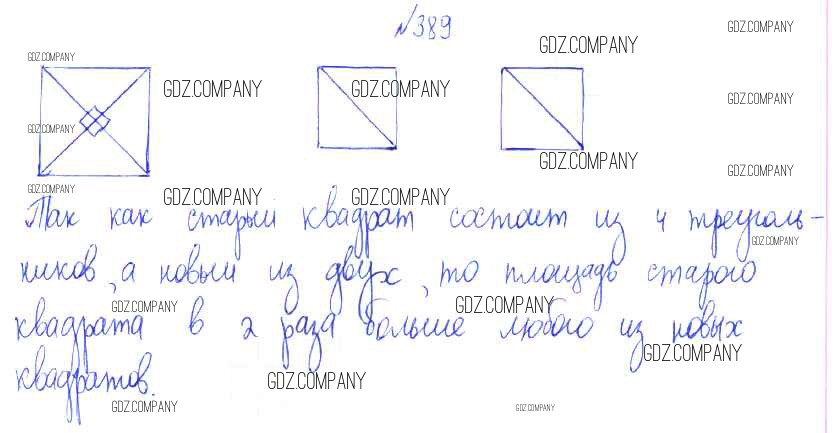 №389
GDZ.COMPANY
GDZ.COMPANY
GDZ.COMPANY
GDZ.COMPANY
GDZ.COMPANY
GDZ.COMPANY
GDZ.COMPANY
GDZ.COMPANY
GDZ.COMPANY
GDZ.COMPANY
GDZ.COMPANY
GDZ.COMPANY
GDZ.COMPANY
Так как старый квадрат состоит из 4 треуголь-
GDZ.COMPANY
ников, а новый из двух, то площадь старого
GDZ.COMPANY
GDZ.COMPANY
квадрата в 2 раза больше любого из новых
GDZ.COMPANY
квадратов.
GDZ.COMPANY
GDZ.COMPANY
GDZ.COMPANY